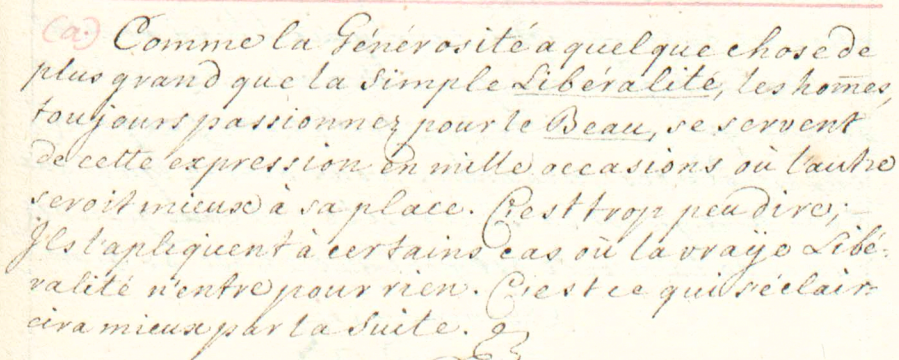 (a.) Comme la Générosité a quelque chose de
plus grand que la simple Libéralité, les hom̄es,
toujours passionnez pour le Beau, se servent
de cette expression en mille occasions où l'autre
seroit mieux à sa place. C'est trop peu dire;–
Ils l'apliquent à certains cas où la vraÿe Libé-
ralité n'entre pour rien. C'est ce qui s'éclair-
cira mieux par la suite.